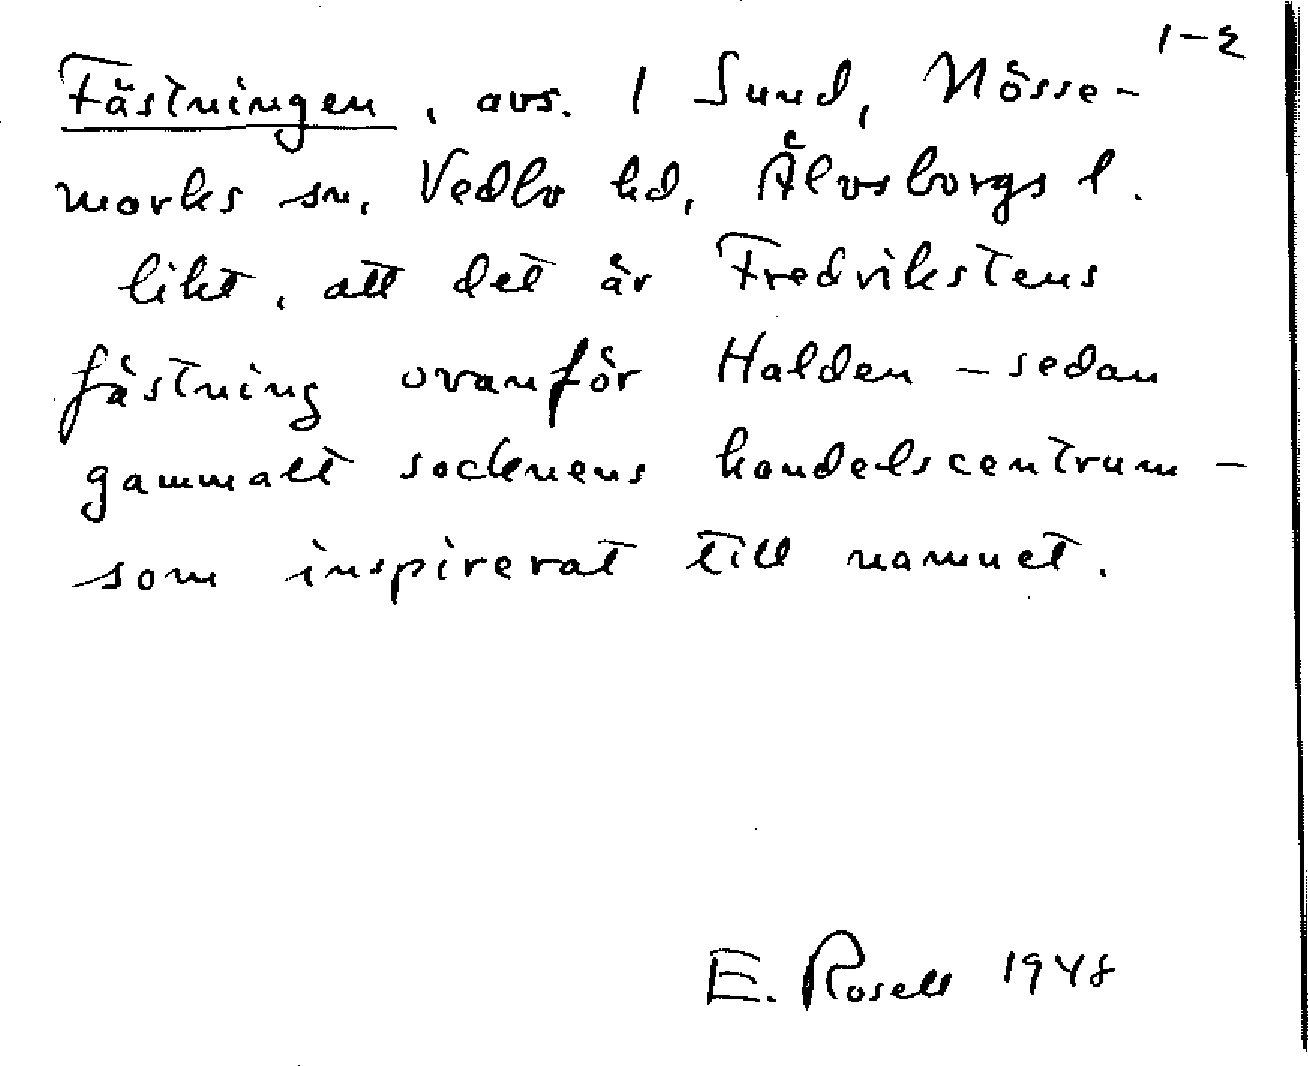 1-2
Fästningen, avs. 1 Sund, Nösse-
marks sn, Vedbo hd, Älvsborgs l.
likt, att det är Fredrikstens
fästning ovanför Halden - sedan
gammalt socknens handelscentrum -
som inspirerat till namnet.
E. Rosell 1948